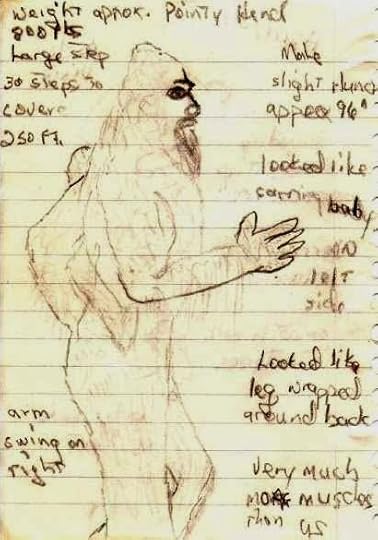 weight appox. Pointy Head
800 lbs
Large step
30 steps to
cover
250 Ft.
Male
slight Hunch
appox 96"
looked like
carring baby
ON
left
side
Looked like
leg wrapped
around back
arm
swing on
right
very much
more muscles
than us